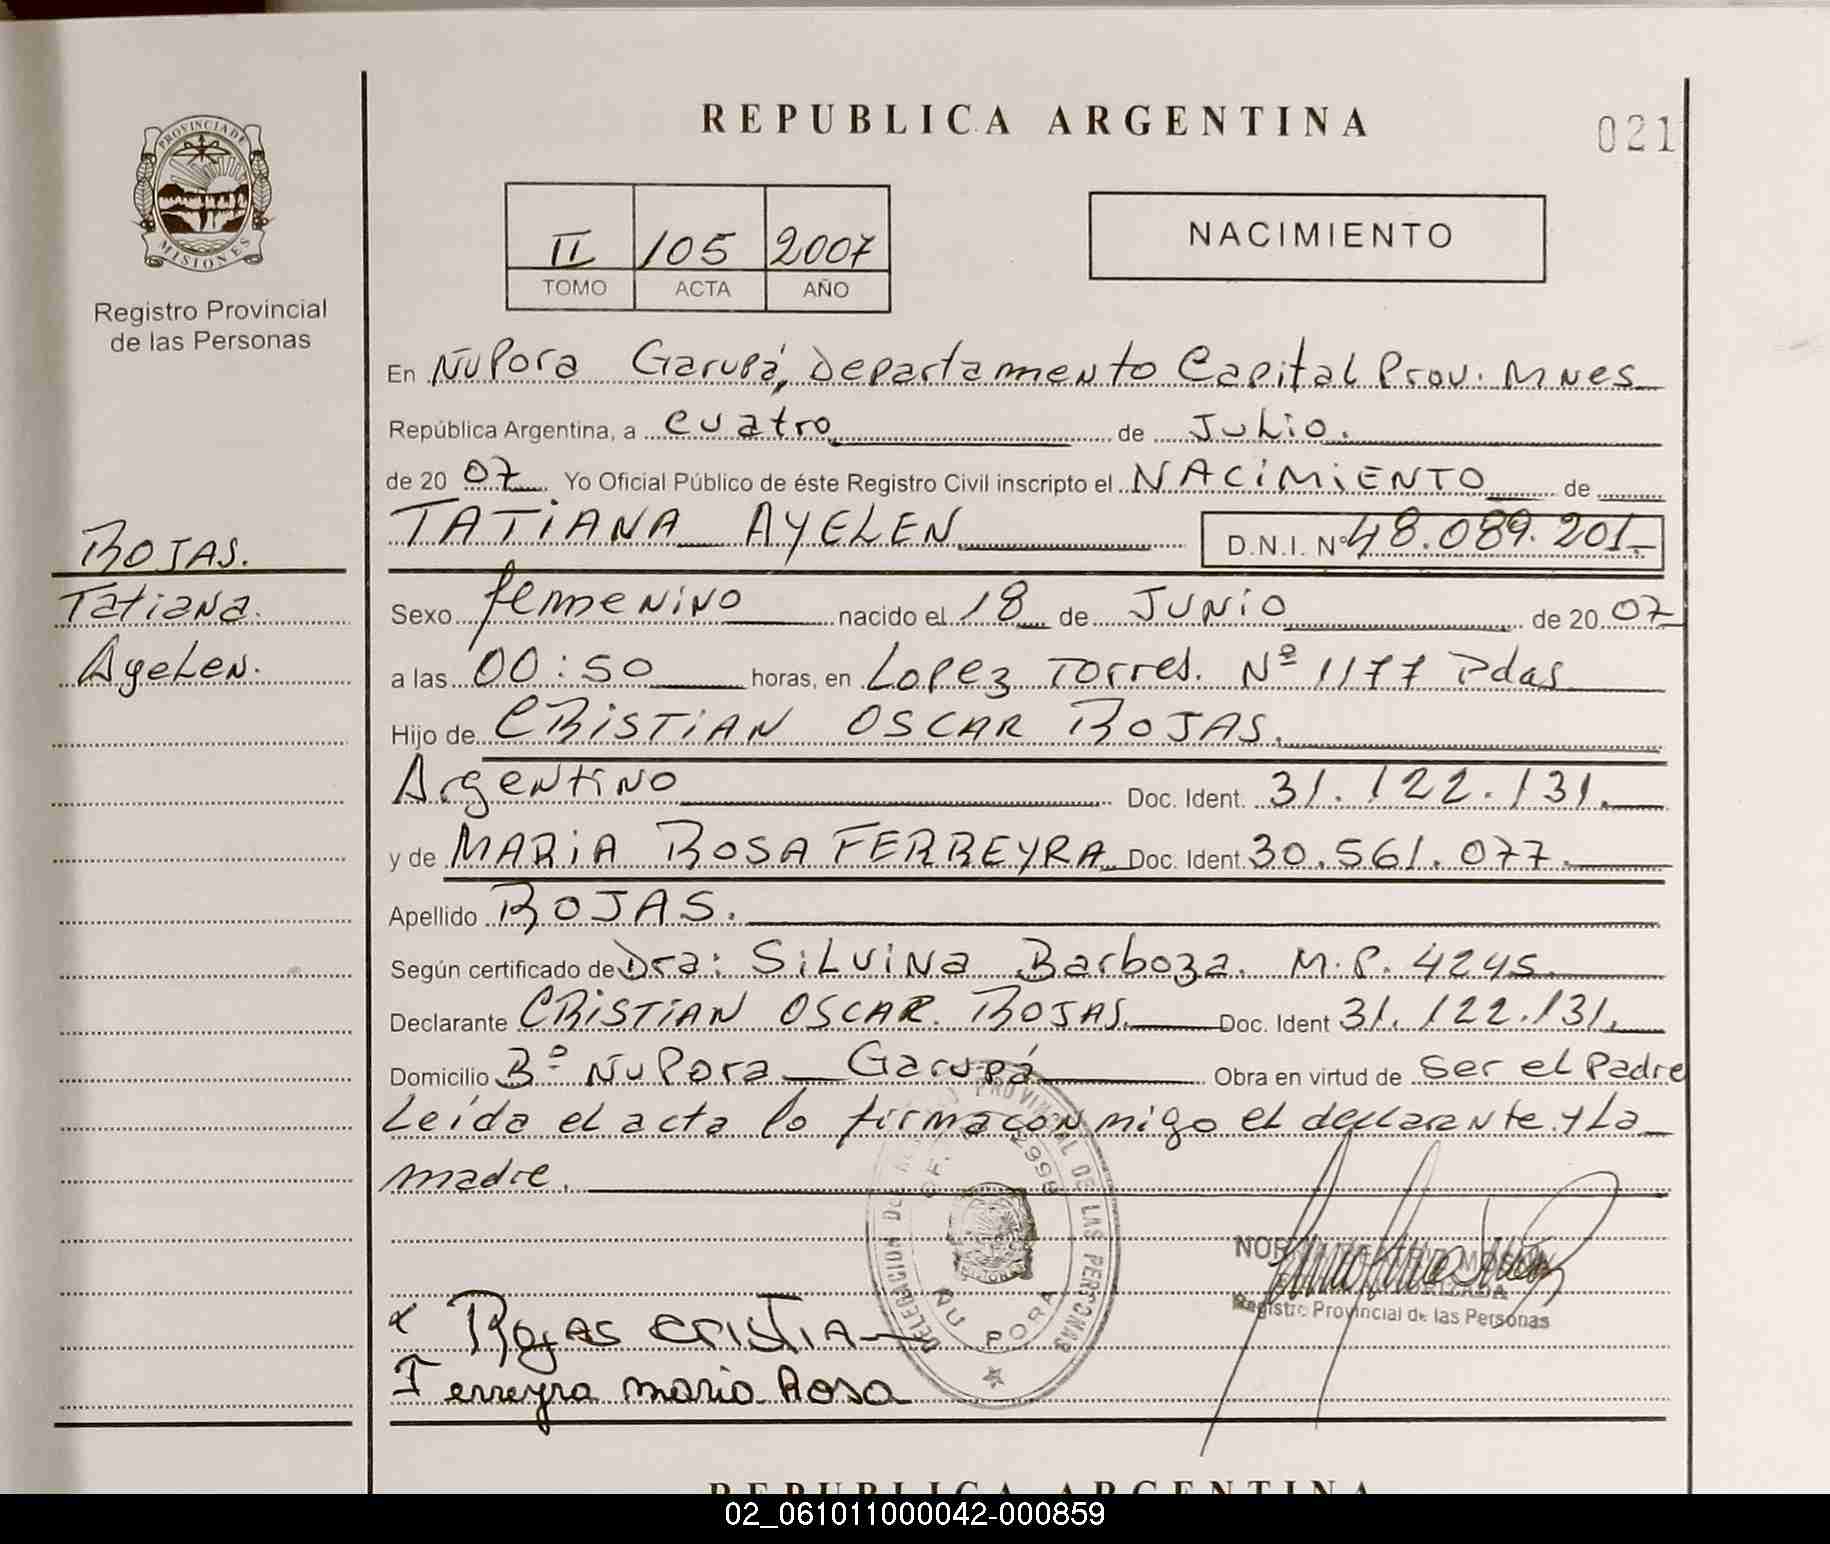 REPUBLICA ARGENTINA
021
PROVINCIA DE
MISIONES
Registro Provincial
de las Personas
II 105 2007
TOMO ACTA AÑO
NACIMIENTO
En ÑuPora Garupá, Departamento Capital Prov. Mnes
República Argentina, a cuatro de Julio.
de 2007 Yo Oficial Público de éste Registro Civil inscripto el NACIMIENTO de
TATIANA AYELEN D.N.I. Nº 48.089.201.-
ROJAS.
Tatiana.
Ayelen.
Sexo femenino nacido el 18 de JUNIO de 2007
a las 00:50 horas, en Lopez Torres. Nº 1177 Pdas
Hijo de CRISTIAN OSCAR ROJAS.
Argentino Doc. Ident. 31.122.131.
y de MARIA ROSA FERREYRA Doc. Ident. 30.561.077.
Apellido ROJAS.
Según certificado de Dra: SILVINA Barboza. M.P. 4245.
Declarante CRISTIAN OSCAR. ROJAS. Doc. Ident 31.122.131.
Domicilio Bº ÑuPora Garupá Obra en virtud de Ser el Padre
Leída el acta lo firma conmigo el declarante y La
madre.
DELEGACION PROVINCIAL DE LAS PERSONAS
2999
ÑU PORA
Registro Provincial de las Personas
x Rojas CRISTIA
Ferreyra maria Rosa
REPUBLICA ARGENTINA
02_061011000042-000859